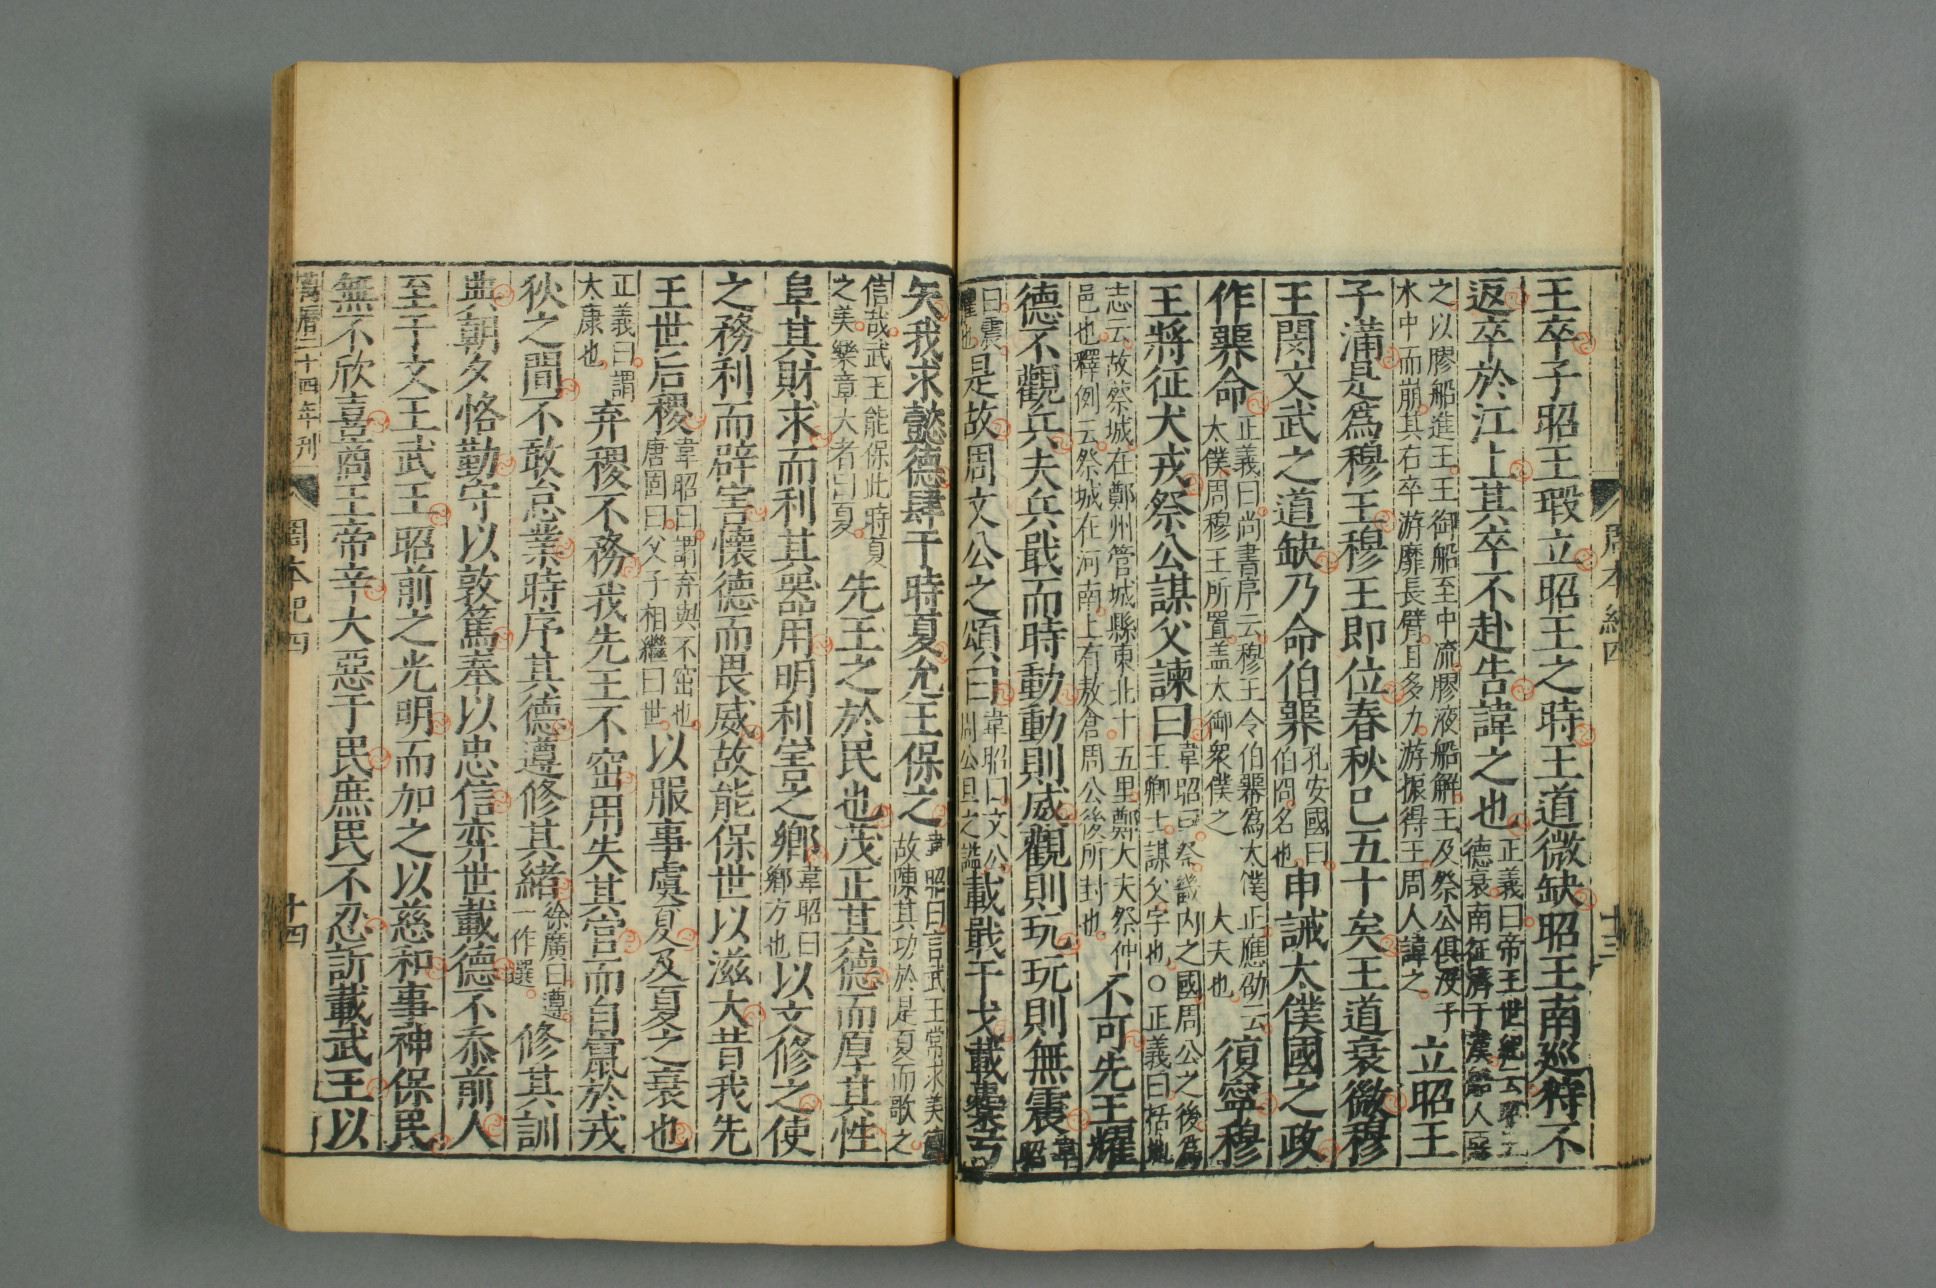 周本紀四
十三
王卒子昭王瑕立昭王之時王道微缺昭王南巡狩不
返卒於江上其卒不赴告諱之也正義曰帝王世紀云昭王德衰南征濟于漢船人惡
之以膠船進王王御船至中流膠液船解王及祭公俱沒于水中而崩其右卒游靡長臂且多力游振得王周人諱之立昭王
子滿是爲穆王穆王即位春秋已五十矣王道衰微穆
王閔文武之道缺乃命伯臩孔安國曰伯冏名也申誡太僕國之政
作臩命正義曰尚書序云穆王令伯臩爲太僕正應劭云太僕周穆王所置蓋太御衆僕之大夫也復寧穆
王將征犬戎祭公謀父諫曰韋昭曰祭畿内之國周公之後爲王卿士謀父字也○正義曰括地
志云故祭城在鄭州管城縣東北十五里鄭大夫祭仲邑也釋例云祭城在河南上有敖倉周公後所封也不可先王耀
德不觀兵夫兵戢而時動動則威觀則玩玩則無震韋昭
曰震懼也是故周文公之頌曰韋昭曰文公周公旦之謚載戢干戈載櫜弓
矢我求懿德肆于時夏允王保之韋昭曰言武王常求美德故陳其功於是夏而歌之
信哉武王能保此時夏之美樂章大者曰夏先王之於民也茂正其德而厚其性
阜其財求而利其器用明利害之鄉韋昭曰鄉方也以文修之使
之務利而辟害懷德而畏威故能保世以滋大昔我先
王世后稷韋昭曰謂弃與不窋也唐固曰父子相繼曰世以服事虞夏及夏之衰也
正義曰謂太康也弃稷不務我先王不窋用失其官而自竄於戎
狄之閒不敢怠業時序其德遵修其緒徐廣曰遵一作選修其訓
典朝夕恪勤守以敦篤奉以忠信奕世載德不忝前人
至于文王武王昭前之光明而加之以慈和事神保民
無不欣喜商王帝辛大惡于民庶民不忍訢載武王以
萬曆二十四年刊
周本紀四
十四